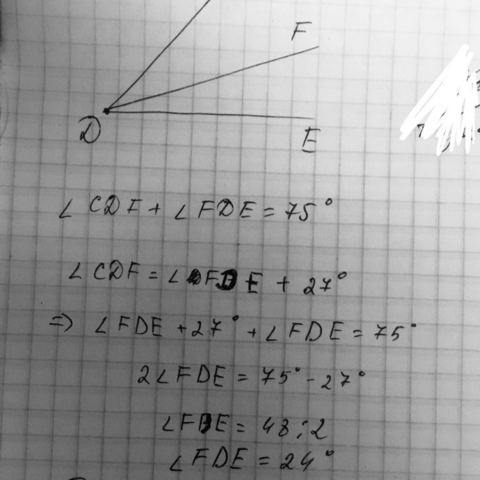 F
D
E
∠CDF + ∠FDE = 75°
∠CDF = ∠FDE + 27°
=> ∠FDE + 27° + ∠FDE = 75°
2∠FDE = 75° - 27°
∠FDE = 48 : 2
∠FDE = 24°